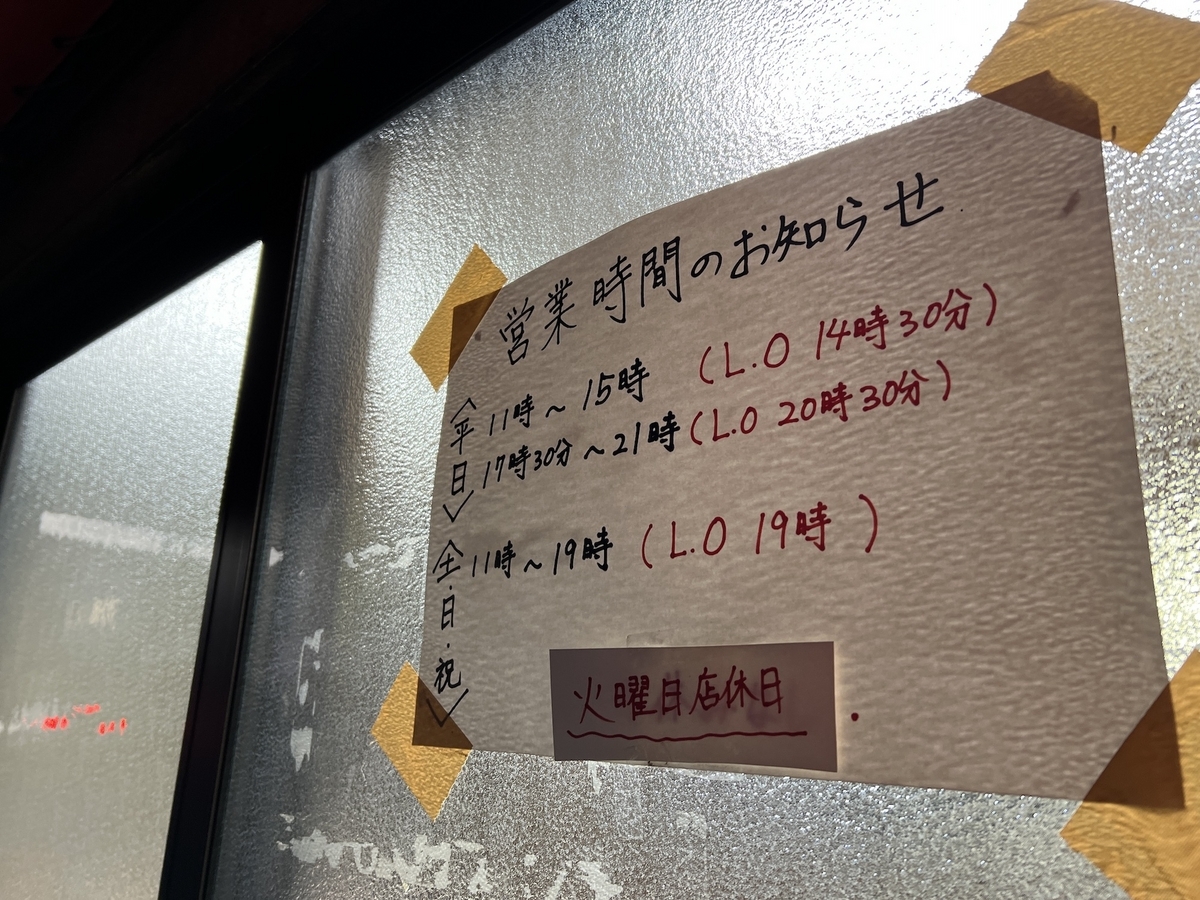 営業時間のお知らせ
〈平日〉
11時～15時 (L.O 14時30分)
17時30分～21時 (L.O 20時30分)
〈土・日・祝〉
11時～19時 (L.O 19時)
火曜日店休日